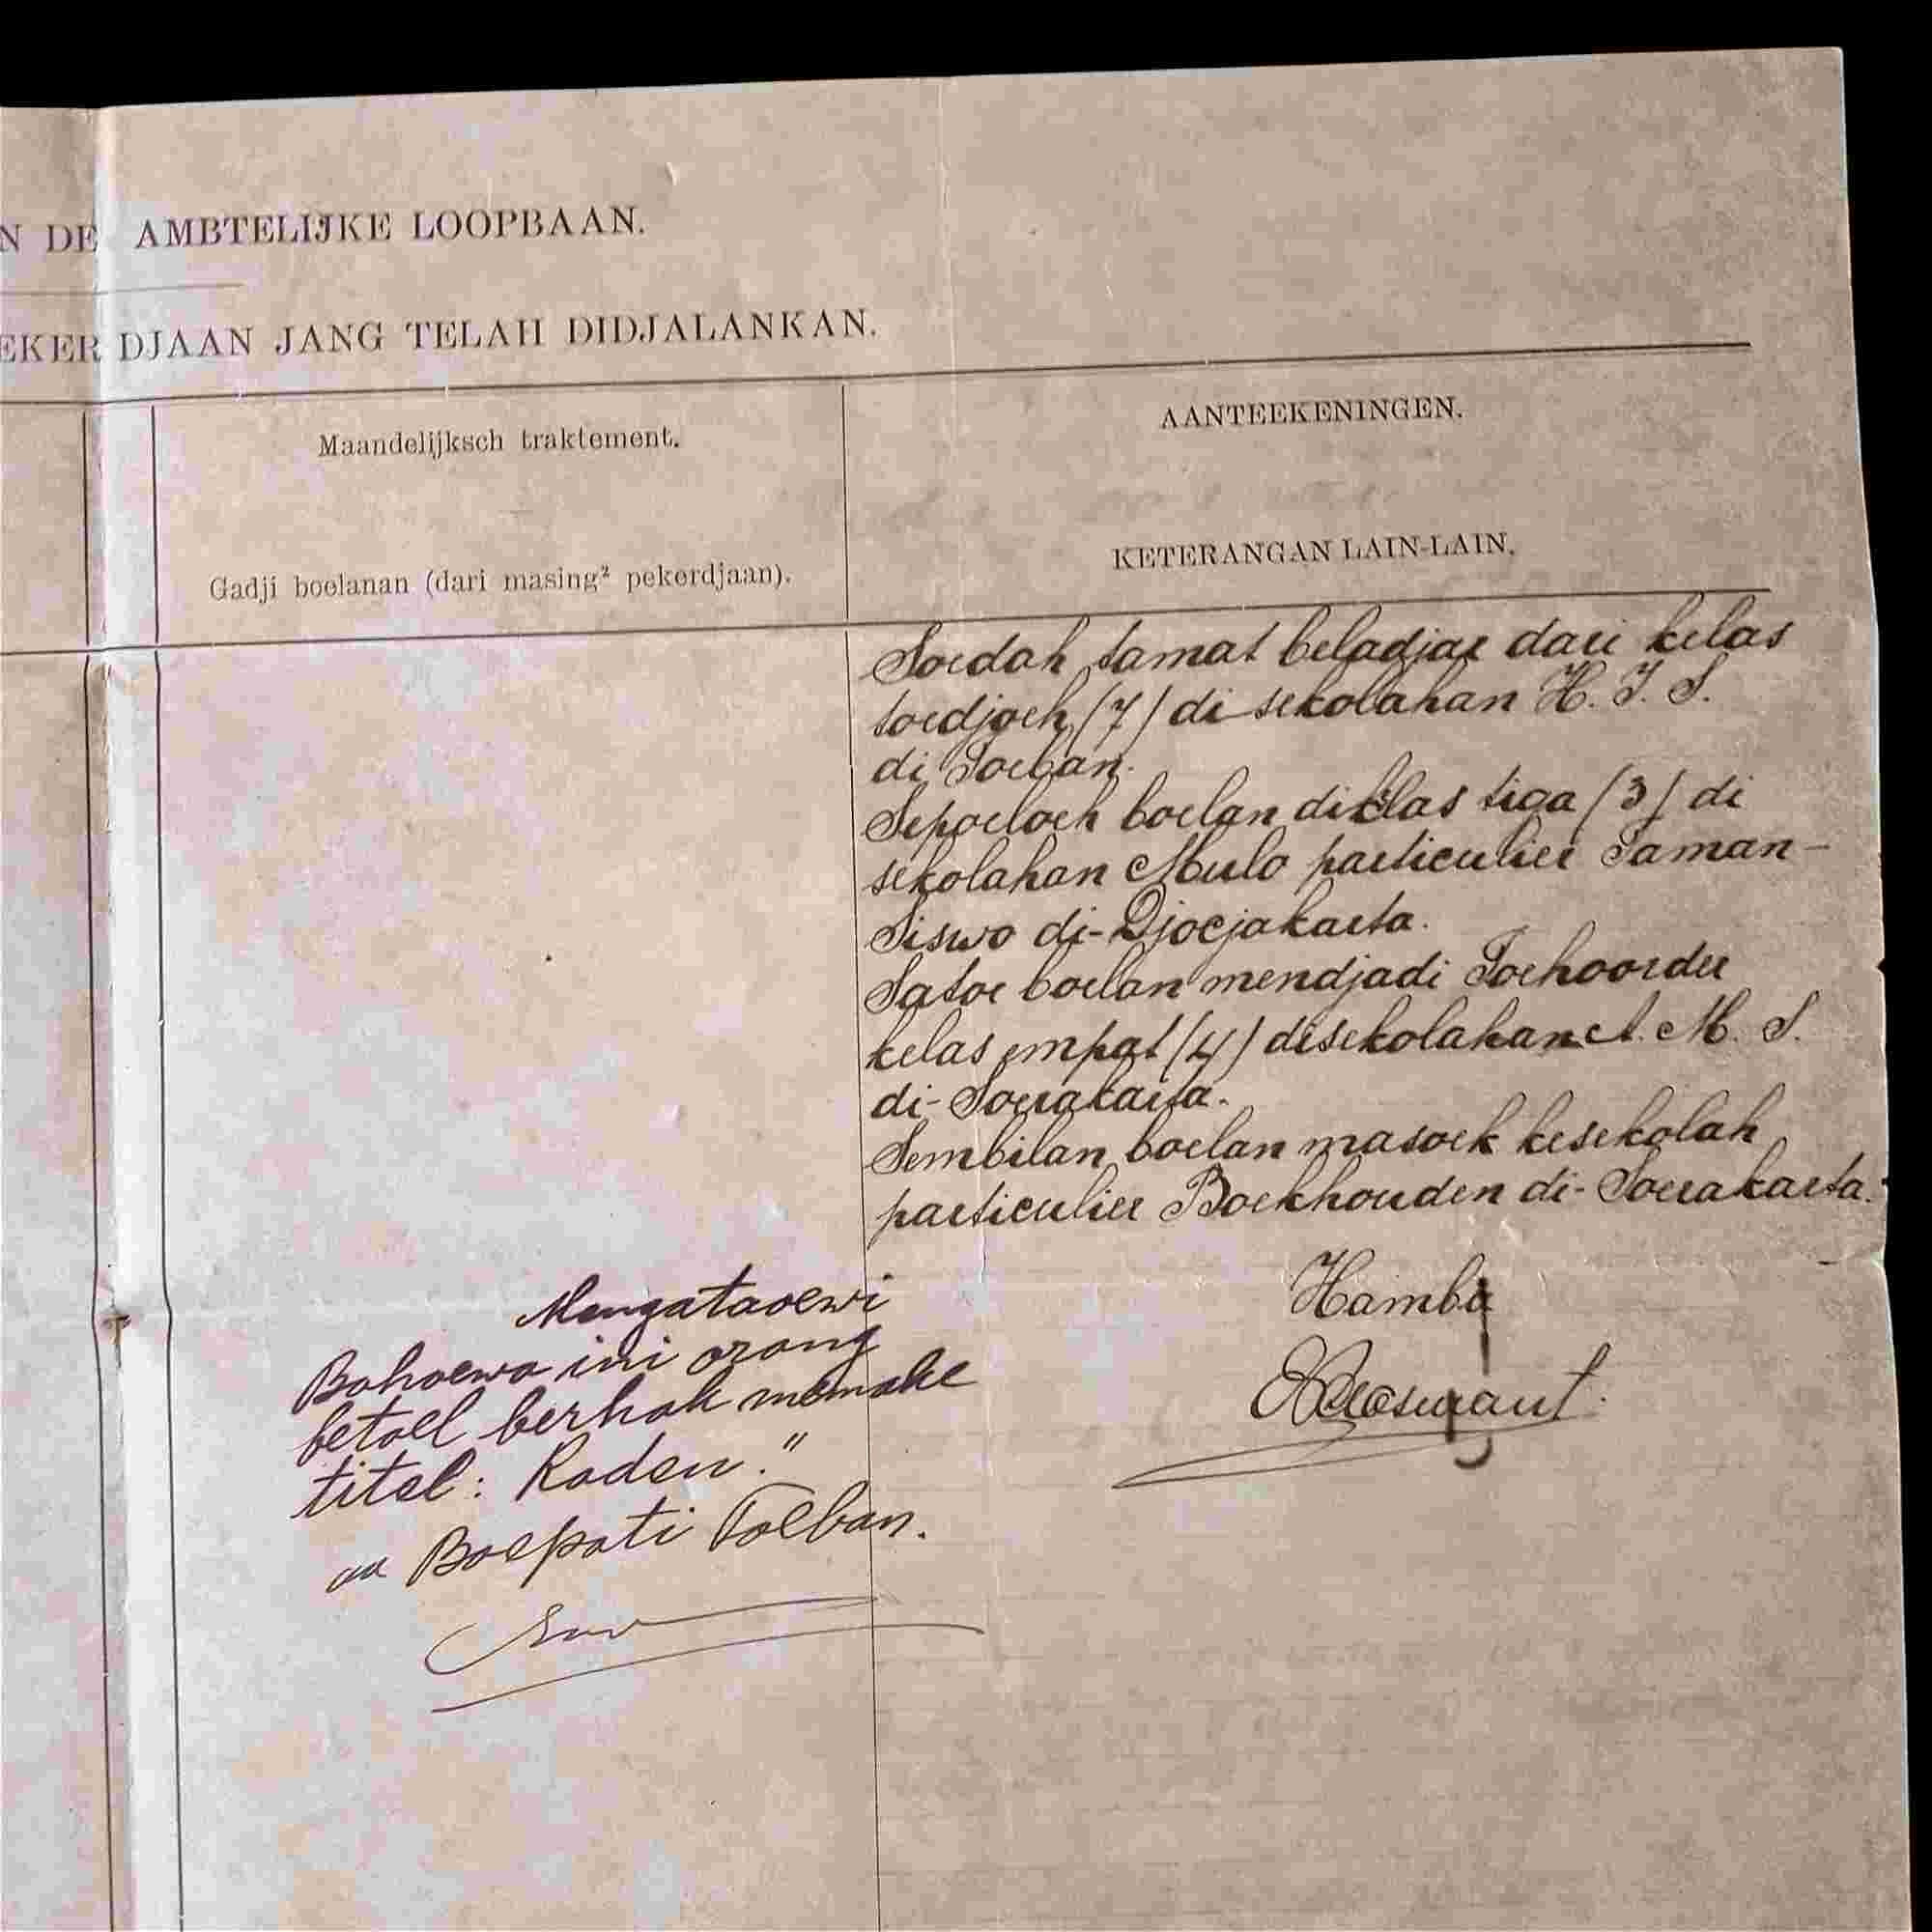 N DE AMBTELIJKE LOOPBAAN.
EKERDJAAN JANG TELAH DIDJALANKAN.
Maandelijksch traktement.
Gadji boelanan (dari masing² pekerdjaan).
AANTEEKENINGEN.
KETERANGAN LAIN-LAIN.
Soedah tamat beladjar dari kelas
toedjoeh (7) di sekolahan H. I. S.
di Toeban.
Sepoeloeh boelan diklas tiga (3) di
sekolahan Mulo particulier Taman-
Siswo di-Djocjakarta.
Satoe boelan mendjadi Toehoorder
kelas empat (4) disekolahan A. M. S.
di-Soerakarta.
Sembilan boelan masoek kesekolah
particulier Boekhouden di-Soerakarta.
Hamba
Mengataoewi
Bahoewa ini orang
betoel berhak memake
titel: Raden."
aa Boepati Toeban.